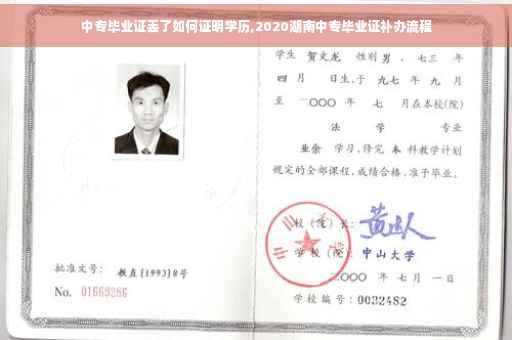 中专毕业证丢了如何证明学历,2020湖南中专毕业证补办流程
学生 贺文龙 性别 男 、七三 年
四 月 日生,于 九七 年 九 月
至 二〇〇〇 年 七 月在本校(院)
法 学 专业
业余 学习,修完 本 科教学计划
规定的全部课程,成绩合格,准予毕业。
校(院)长:
学校(院): 中山大学
二〇〇〇 年 七 月 一 日
学校编号: 0032482
批准文号: 教直(1993)8号
No. 01669286